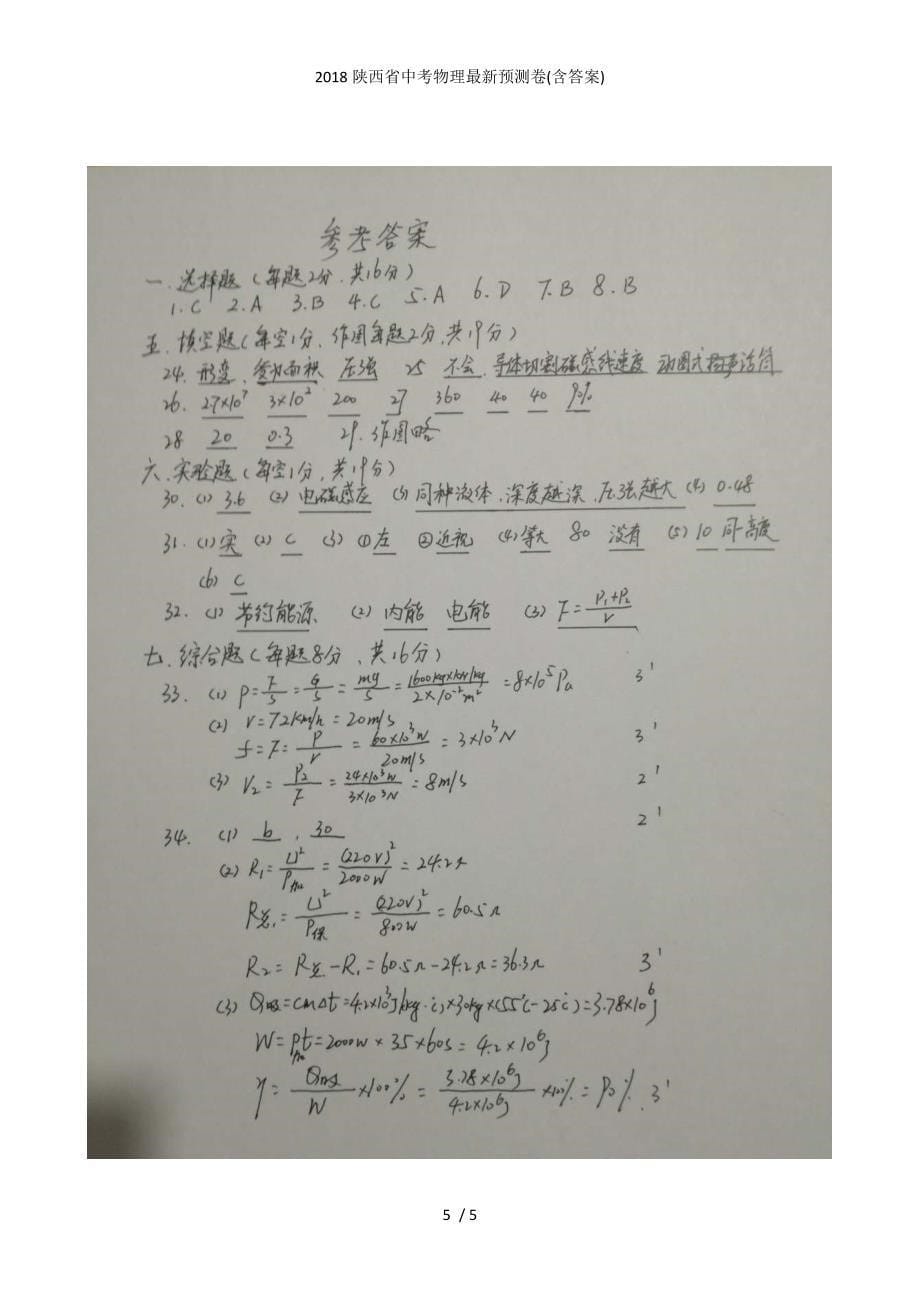 2018陕西省中考物理最新预测卷(含答案)
参考答案
一.选择题(每题2分.共16分)
1.C 2.A 3.B 4.C 5.A 6.D 7.B 8.B
五.填空题(每空1分,作图每题2分,共19分)
24.形变、受力面积 压强 25 不会 导体切割磁感线速度 动圈式扬声话筒
26. 2.7×10⁷ 3×10² 200 27 360 40 40 90%
28 20 0.3 29.作图略
六.实验题(每空1分,共19分)
30.(1) 3.6 (2) 电磁感应 (3) 同种液体,深度越深,压强越大 (4) 0.48
31.(1)实 (2) C (3) ①左 ②近视 (4)等大 80 没有 (5) 10 同一高度
(6) C
32.(1) 节约能源 (2) 内能 电能 (3) F=(P₁+P₂)/V
七.综合题(每题8分、共16分)
33.(1) P=F/S=G/S=mg/S=1600kg×10N/kg/2×10⁻²m²=8×10⁵Pa 3'
(2) V=72km/h=20m/s
f=F=P/V=60×10³W/20m/s=3×10³N 3'
(3) V₂=P₂/F=24×10³W/3×10³N=8m/s 2'
34. (1) b , 30 2'
(2) R₁=U²/P加=(220V)²/2000W=24.2Ω
R总=U²/P保=(220V)²/800W=60.5Ω
R₂=R总-R₁=60.5Ω-24.2Ω=36.3Ω 3'
(3) Q吸=cm△t=4.2×10³J/(kg·℃)×30kg×(55℃-25℃)=3.78×10⁶J
W=P加t=2000W×35×60s=4.2×10⁶J
η=Q吸/W×100%=3.78×10⁶J/4.2×10⁶J×100%=90% 3'
5 / 5